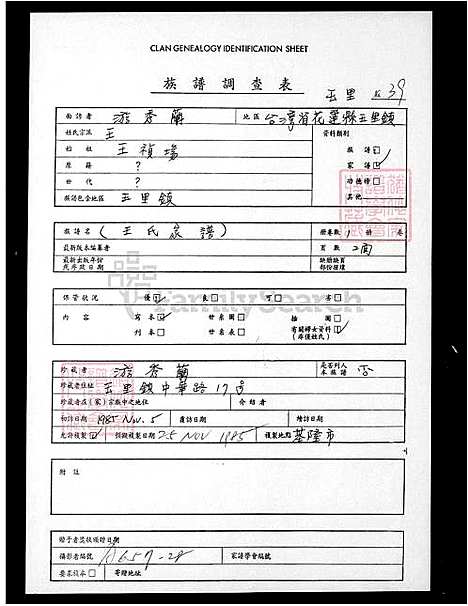 CLAN GENEALOGY IDENTIFICATION SHEET
族譜調查表
玉里 39
面訪者 游秀蘭 地區 台灣省花蓮縣玉里鎮
姓氏宗派 王 資料類別
始祖 王禎瑞 族譜□
原籍 ? 家譜☑
世代 ? 功德榜□
族譜包含地區 玉里鎮 其他
族譜名 (王氏家譜) 冊卷數 冊 卷
最新版本編纂者 頁數 2面
最新出版年份 缺頭缺頁
或序跋日期 部份損壞
保管狀況 優☑ 良□ 可□ 劣□
內容 寫本☑ 世系圖□ 插圖□
刊本□ 世系表□ 有關婦女資料☑
(非僅姓氏)
FamilySearch
珍藏者 游秀蘭 是否列入本族譜 否
珍藏者住址 玉里鎮中華路17号
珍藏者在(家)宗族中之地位 介紹者
初訪日期 1985 Nov. 5 覆訪日期 續訪日期
允許複製☑ 擬縱複製日期 25 NOV 1985 複製地點 基隆市
附註
贈予者獎狀頒贈日期
攝影者編號 A657-28 家譜學會編號
要求複本□ 寄贈地址